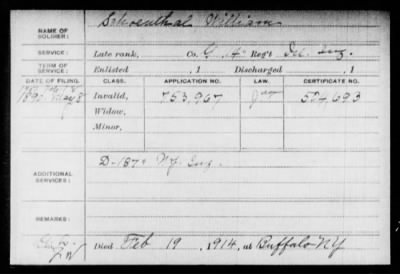 NAME OF SOLDIER: Schoenthal William
SERVICE: Late rank, Co. G, 14" Reg't Inf.
TERM OF SERVICE: Enlisted , 1 Discharged , 1
DATE OF FILING. CLASS. APPLICATION NO. LAW. CERTIFICATE NO.
1890 May 8 Invalid, 753,967 524,693
Widow,
Minor,
ADDITIONAL SERVICES: D-187" NY. Inf.
REMARKS:
Died Feb 19, 1914, at Buffalo NY